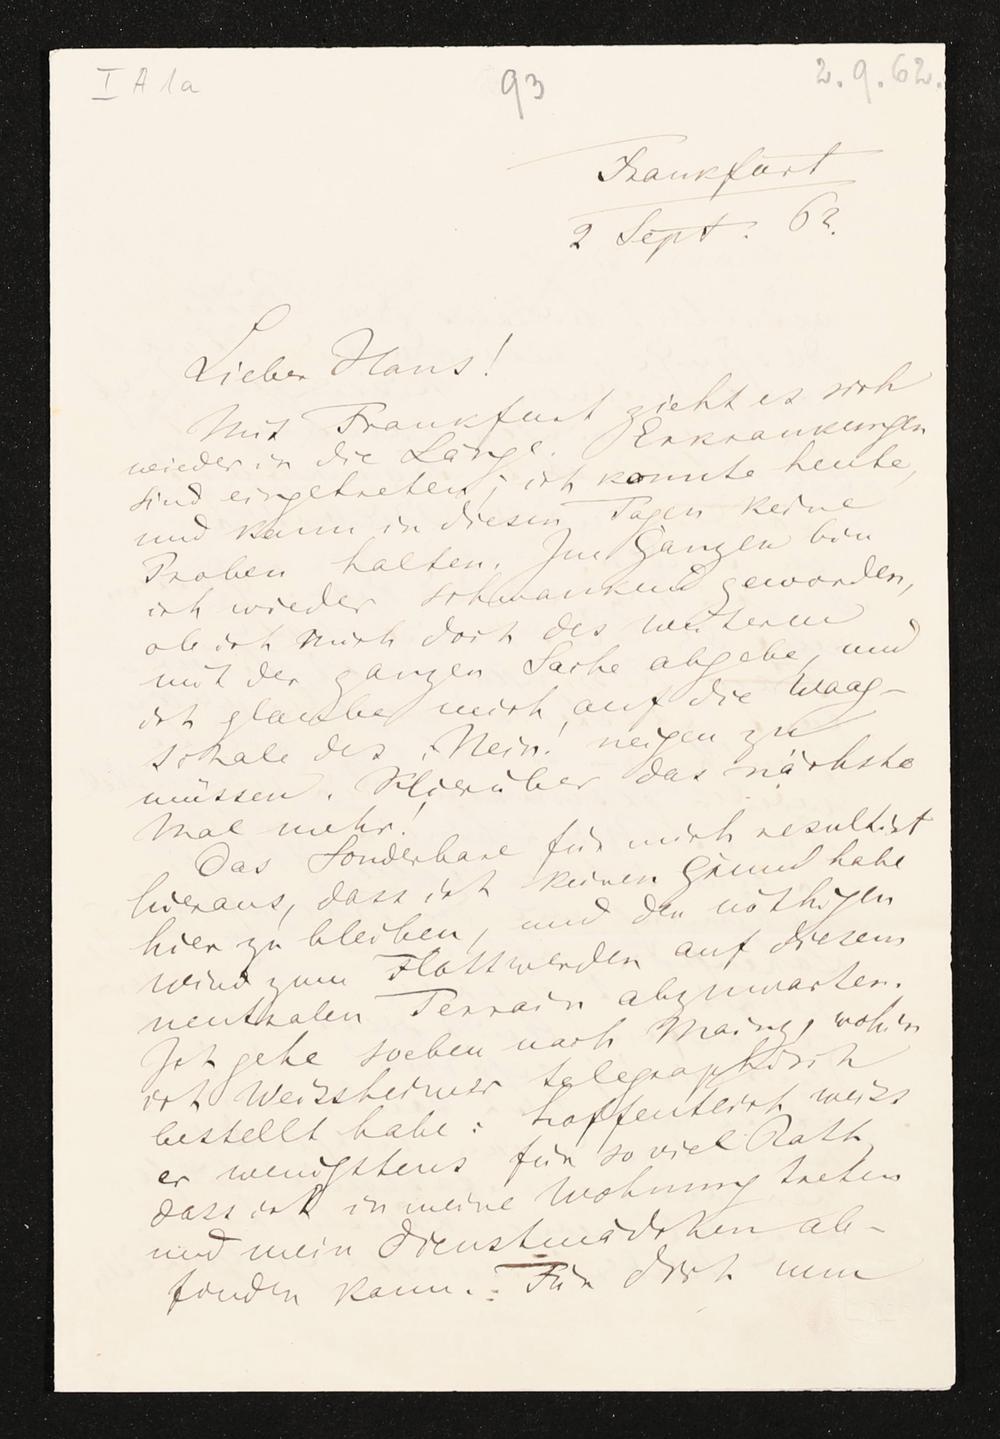 I A 1a
93
2.9.62.
Frankfurt
2 Sept. 62.
Lieber Hans!
Mit Frankfurt zieht es sich
wieder in die Länge. Erkrankungen
sind eingetreten; ich konnte heute,
und kann in diesen Tagen keine
Proben halten. Im Ganzen bin
ich wieder schwankend geworden,
ob ich mich doch des weiteren
mit der ganzen Sache abgebe, und
ich glaube mich auf die Waag-
schale des "Nein!" neigen zu
müssen. Hierüber das nächste
Mal mehr!
Das Sonderbare für mich resultirt
hieraus, dass ich keinen Grund habe
hier zu bleiben, und den nöthigen
Wind zum Flottwerden auf diesem
neutralen Terrain abzuwarten.
Ich gehe soeben nach Mainz, wohin
ich Weissheimer telegraphisch
bestellt habe: hoffentlich weiss
er wenigstens für so viel Rath,
dass ich in meine Wohnung treten
und mein Dienstmädchen ab-
finden kann. Für Dich nun